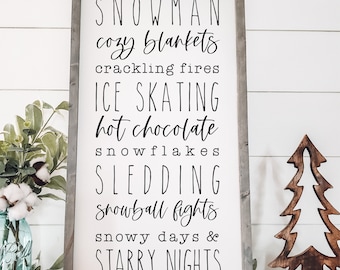 SNOWMAN
cozy blankets
crackling fires
ICE SKATING
hot chocolate
snowflakes
SLEDDING
snowball fights
snowy days &
STARRY NIGHTS